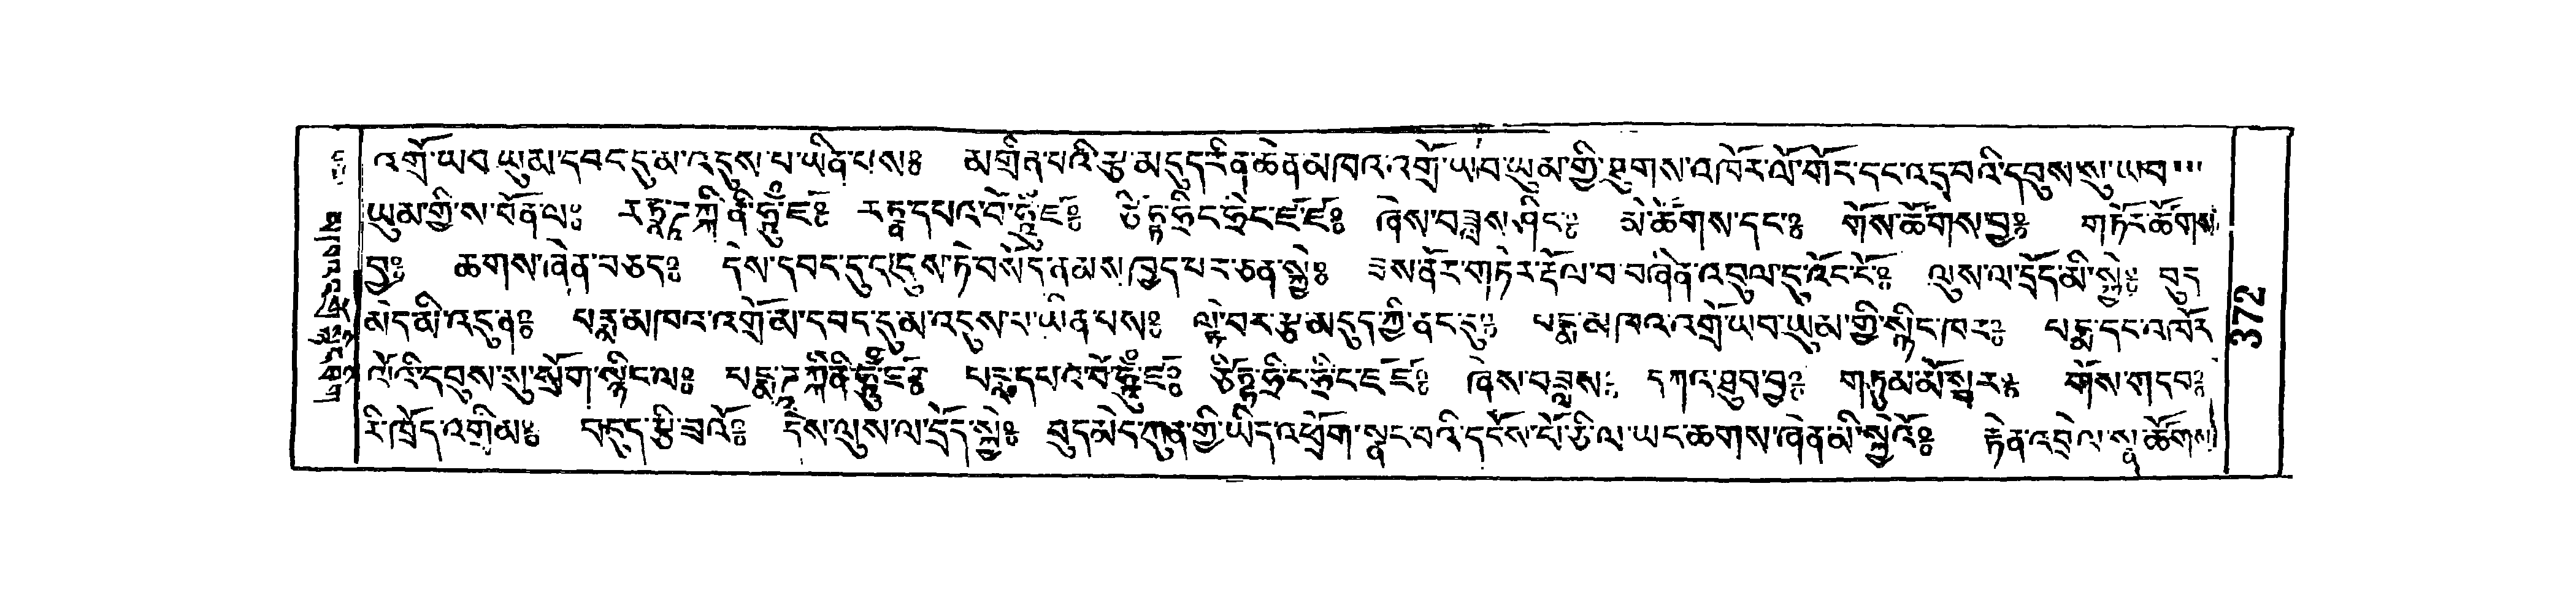 འགྲོ་ཡབ་ཡུམ་དབང་དུ་མ་འདུས་པ་ཡིན་པས༔ མགྲིན་པའི་རྩ་མདུད་རིན་ཆེན་མཁའ་འགྲོ་ཡབ་ཡུམ་གྱི་ཐུགས་འཁོར་ལོ་གོང་དང་འདྲ་བའི་དབུས་སུ་ཡབ་
ཡུམ་གྱི་ས་བོན་ལ༔ རཏྣ་ཌཱ་ཀི་ནི་ཧཱུྃ་ཛཿ རཏྣ་དཔའ་བོ་ཧཱུྃ་ཛཿ ཙིཏྟ་ཧྲིང་ཧྲིང་ཛཿཛཿ ཞེས་བཟླས་ཤིང༔ མེ་ཚོགས་དང༔ གོས་ཚོགས་བྱ༔ གཏོར་ཚོགས་
བྱ༔ ཆགས་ཞེན་བཅད༔ དེས་དབང་དུ་འདུས་ཏེ་བསོད་ནམས་ཁྱད་པར་ཅན་སྐྱེ༔ ཟས་ནོར་གཏེར་རྡོལ་བ་བཞིན་འབུལ་དུ་འོང་ངོ༔ ལུས་ལ་དྲོད་མི་སྐྱེ༔ བུད་
མེད་མི་འདུན༔ པདྨ་མཁའ་འགྲོ་མ་དབང་དུ་མ་འདུས་པ་ཡིན་པས༔ ལྟེ་བར་རྩ་མདུད་ཀྱི་ནང་དུ༔ པདྨ་མཁའ་འགྲོ་ཡབ་ཡུམ་གྱི་སྙིང་ཁར༔ པདྨ་དང་འཁོར་
ལོའི་དབུས་སུ་སྲོག་སྙིང་ལ༔ པདྨ་ཌཱ་ཀི་ནི་ཧཱུྃ་ཛཿ པདྨ་དཔའ་བོ་ཧཱུྃ་ཛཿ ཙིཏྟ་ཧྲིང་ཧྲིང་ཛཿཛཿ ཞེས་བཟླས༔ དཀའ་ཐུབ་བྱ༔ གཏུམ་མོ་སྦར༔ གོས་གདབ༔
རི་ཁྲོད་འགྲིམ༔ བདུད་རྩི་ཟའོ༔ དེས་ལུས་ལ་དྲོད་སྐྱེ༔ བུད་མེད་ཀུན་གྱི་ཡིད་འཕྲོག་སྣང་བའི་དངོས་པོ་ཅི་ལ་ཡང་ཆགས་ཞེན་མི་སྐྱེའོ༔ རྟེན་འབྲེལ་སྣ་ཚོགས་